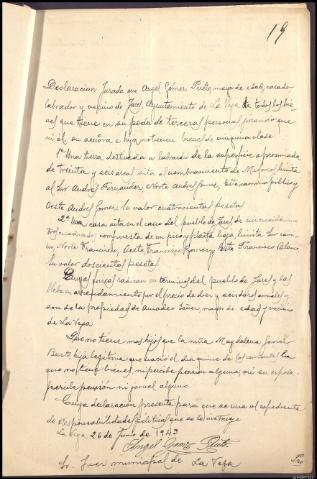 19
Declaracion Jurada que Angel Gómez Prieto mayor de edad, casado
labrador y vecino de Jares, Ayuntamiento de La Vega de todos los bie-
nes que tiene en su poder de terceras personas puesto que
ni él su señora e hija no tienen bienes de ninguna clase
1ª Una tierra destinada a labradío de la superficie aproximada
de treinta y seis areas sita al nombramiento de linita
al Sur Andres Fernandez, Norte Andres Gomez, Este camino público y
Oeste Andres Gomez la valor cuatrocientas pesetas
2ª una casa sita en el casco del pueblo de Jares de
metros cuadrados, compuesta de un piso y planta baja, linita Sur cami-
no, Norte Francisco, Oeste Francisco y Este Francisco
Su valor doscientas pesetas
Cuyas fincas radican en terminos del pueblo de Jares y las
lleba en arrendamiento por el precio de diez y seis duros anuales y
son de la propiedad de Amadeo mayor de edad y vecino
de La Vega
Que no tiene mas hijos que la niña Magdalena
hija legitima que nació el dia quince de los corrientes la
que no tiene bienes ni percibe pension alguna, ni su espo-
percibe pensión ni jornal alguno
Cuya declaracion presenta para que se una al expediente
de responsabilidades políticas que se le instruye
La Vega, 26 de Junio de 1943
Angel Gomez Prieto
Sr. Juez municipal de La Vega